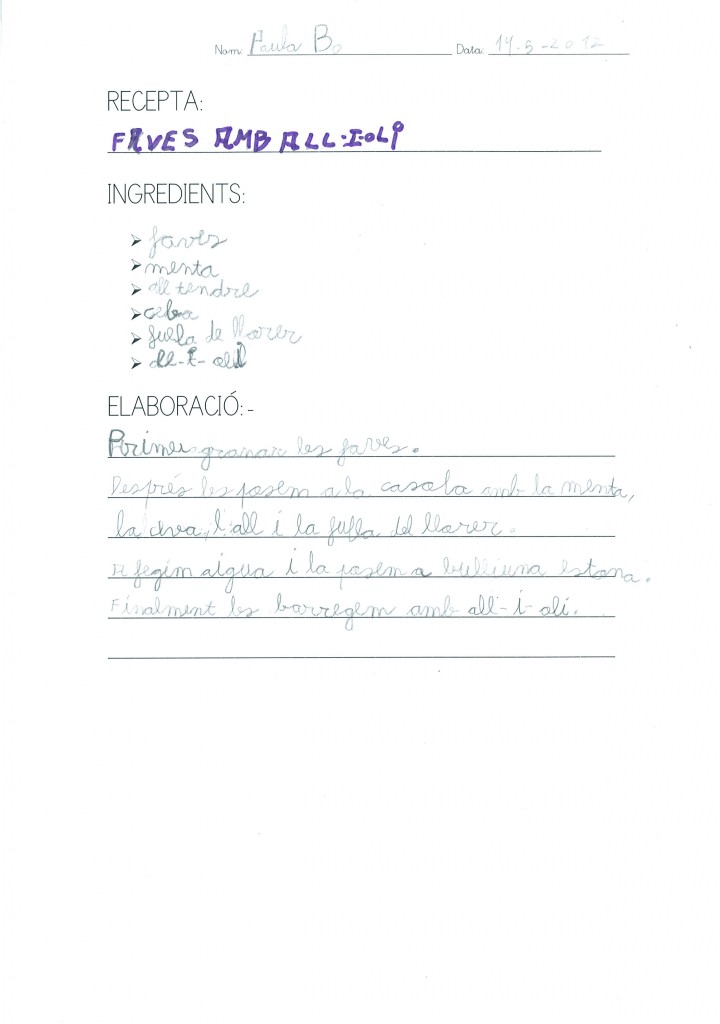 Nom: Paula Bo Data: 14-5-2012
RECEPTA:
FAVES AMB ALL-I-OLI
INGREDIENTS:
➢ faves
➢ menta
➢ all tendre
➢ ceba
➢ fulla de llorer
➢ all-i-oli
ELABORACIÓ:-
Primer granar les faves.
Després les posem a la casola amb la menta,
la ceva, l'all i la fulla del llorer.
A fegim aigua i la posem a bulliuna estona.
Finalment les barregem amb all-i-oli.